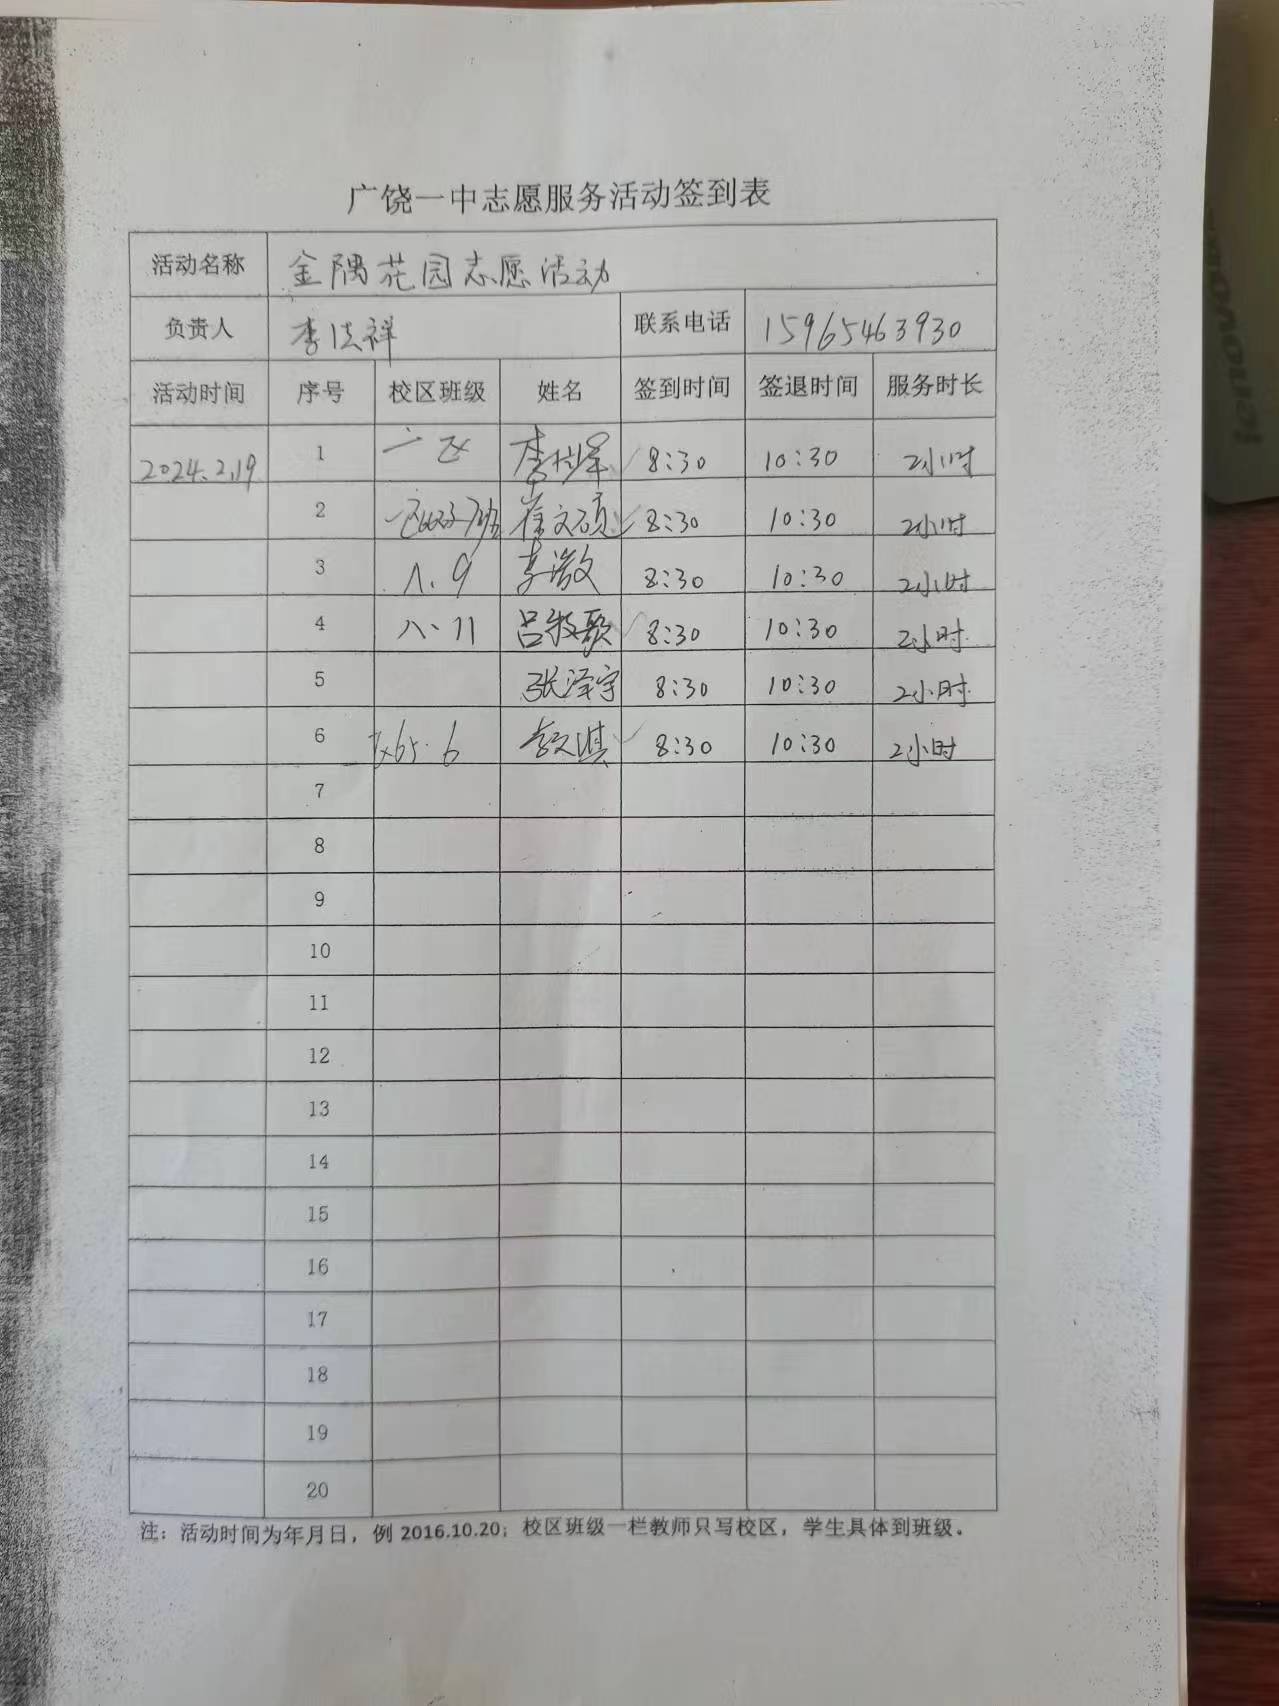 广饶一中志愿服务活动签到表
活动名称 金隅花园志愿活动
负责人 李法祥 联系电话 15965463930
活动时间 序号 校区班级 姓名 签到时间 签退时间 服务时长
2024.2.19 1 一区 8:30 10:30 2小时
2 崔文硕 8:30 10:30 2小时
3 八.9 李澈文 8:30 10:30 2小时
4 八.11 吕牧歌 8:30 10:30 2小时
5 张泽宇 8:30 10:30 2小时
6 8:30 10:30 2小时
7
8
9
10
11
12
13
14
15
16
17
18
19
20
注：活动时间为年月日，例 2016.10.20；校区班级一栏教师只写校区，学生具体到班级。
lenovo